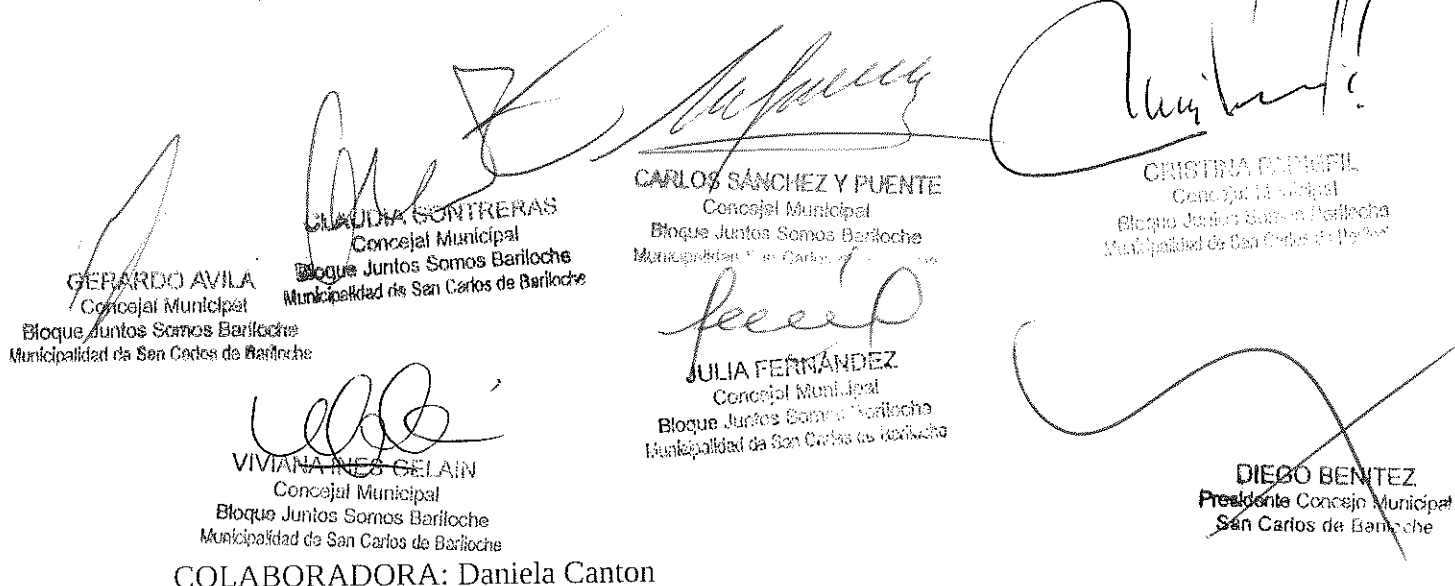 GERARDO AVILA
Concejal Municipal
Bloque Juntos Somos Bariloche
Municipalidad de San Carlos de Bariloche
CLAUDIA CONTRERAS
Concejal Municipal
Bloque Juntos Somos Bariloche
Municipalidad de San Carlos de Bariloche
CARLOS SÁNCHEZ Y PUENTE
Concejal Municipal
Bloque Juntos Somos Bariloche
Municipalidad San Carlos de
CRISTINA
Concejal Municipal
Bloque Juntos Somos Bariloche
Municipalidad de San Carlos de Bariloche
JULIA FERNÁNDEZ
Concejal Municipal
Bloque Juntos Somos Bariloche
Municipalidad de San Carlos de Bariloche
VIVIANA INES GELAIN
Concejal Municipal
Bloque Juntos Somos Bariloche
Municipalidad de San Carlos de Bariloche
DIEGO BENITEZ
Presidente Concejo Municipal
San Carlos de Bariloche
COLABORADORA: Daniela Canton